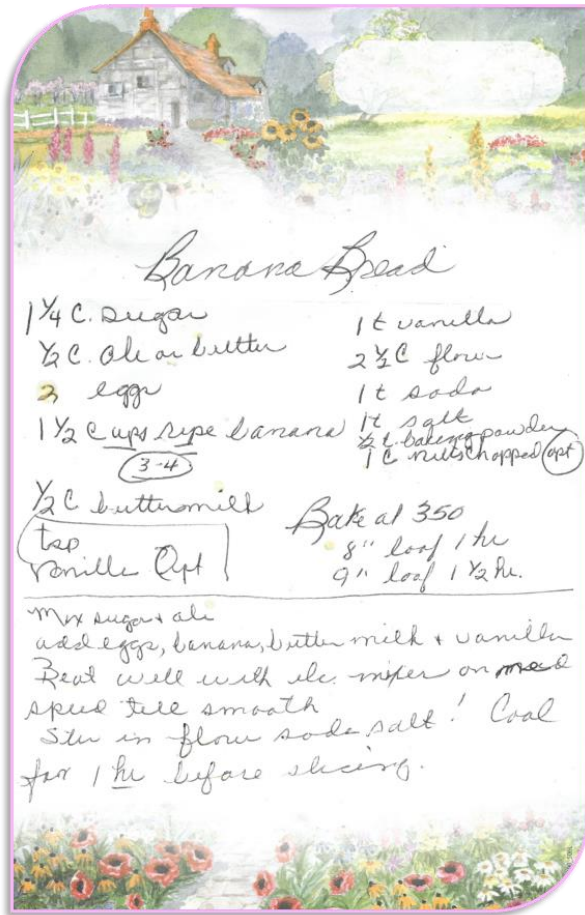 Banana Bread
1 1/4 C. sugar
1/2 C. Ole or butter
2 eggs
1 1/2 Cups ripe banana
3-4
1/2 C buttermilk
tsp
vanilla Opt
1 t vanilla
2 1/2 C flour
1 t soda
1t salt
1/2 t. baking powder
1 C nuts chopped opt
Bake at 350
8" loaf 1 hr
9" loaf 1 1/2 hr.
Mix sugar + ole
add eggs, banana, butter milk + vanilla
Beat well with ele. mixer on med
speed till smooth
Stir in flour soda salt! Cool
for 1 hr before slicing.